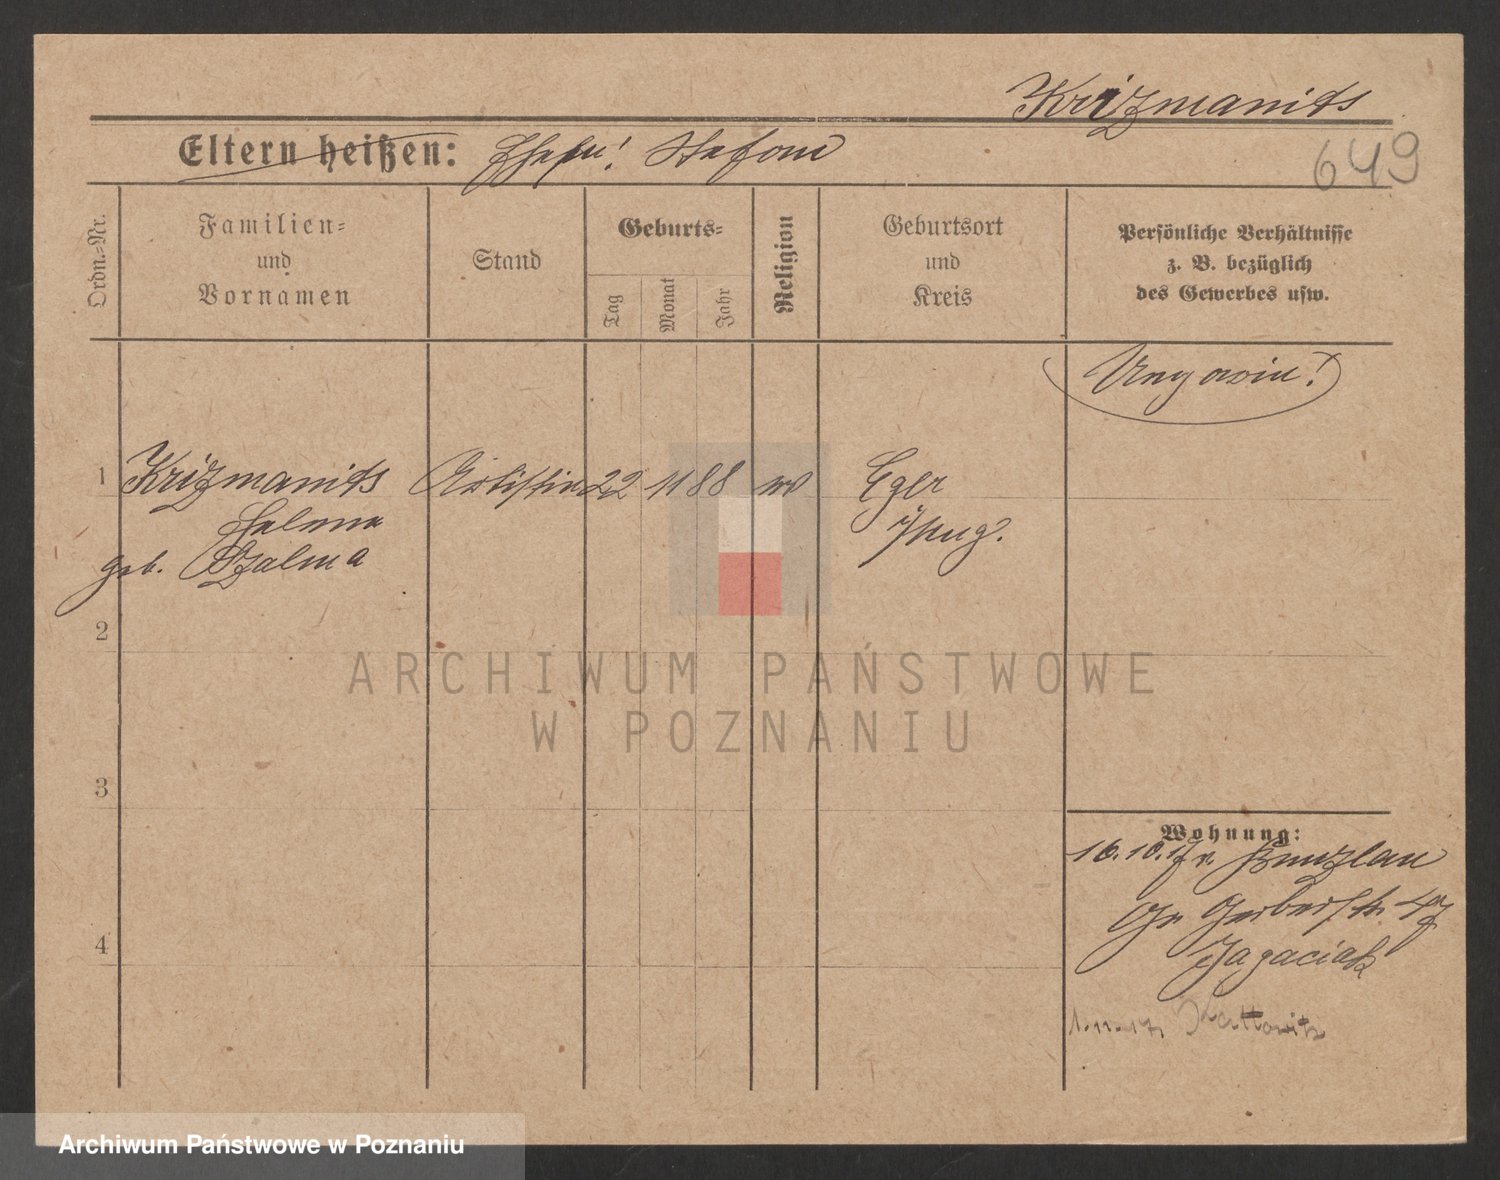 Krizmanits
649
Eltern heißen: Stefan
Ordn.-Nr.
Familien=
und
Vornamen
Stand
Geburts=
Tag
Monat
Jahr
Religion
Geburtsort
und
Kreis
Persönliche Verhältnisse
z. B. bezüglich
des Gewerbes usw.
Ungarin!
1 Krizmanits Artistin 22 11 88 Eger
Helene Ung.
geb. Szalma
2
3
4
Wohnung:
16.10.17 v. Bunzlau
Gr. Gerberstr. 47
Jagaciak
1.11.17 Kattowitz
ARCHIWUM PAŃSTWOWE
W POZNANIU
Archiwum Państwowe w Poznaniu